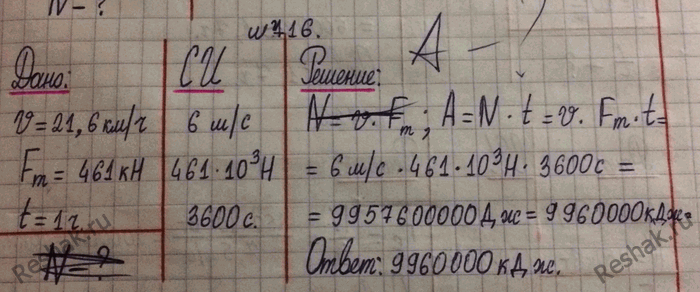 N - ?
№716.
A - ?
Дано:
v = 21,6 км/ч
Fт = 461 кН
t = 1 ч.
N - ?
СИ
6 м/с
461·10³Н
3600 с.
Решение:
N = v·Fт; A = N·t = v·Fт·t =
= 6 м/с · 461·10³Н · 3600с =
= 9957600000Дж = 9960000кДж.
Ответ: 9960000 кДж.
Reshak.ru
Reshak.ru